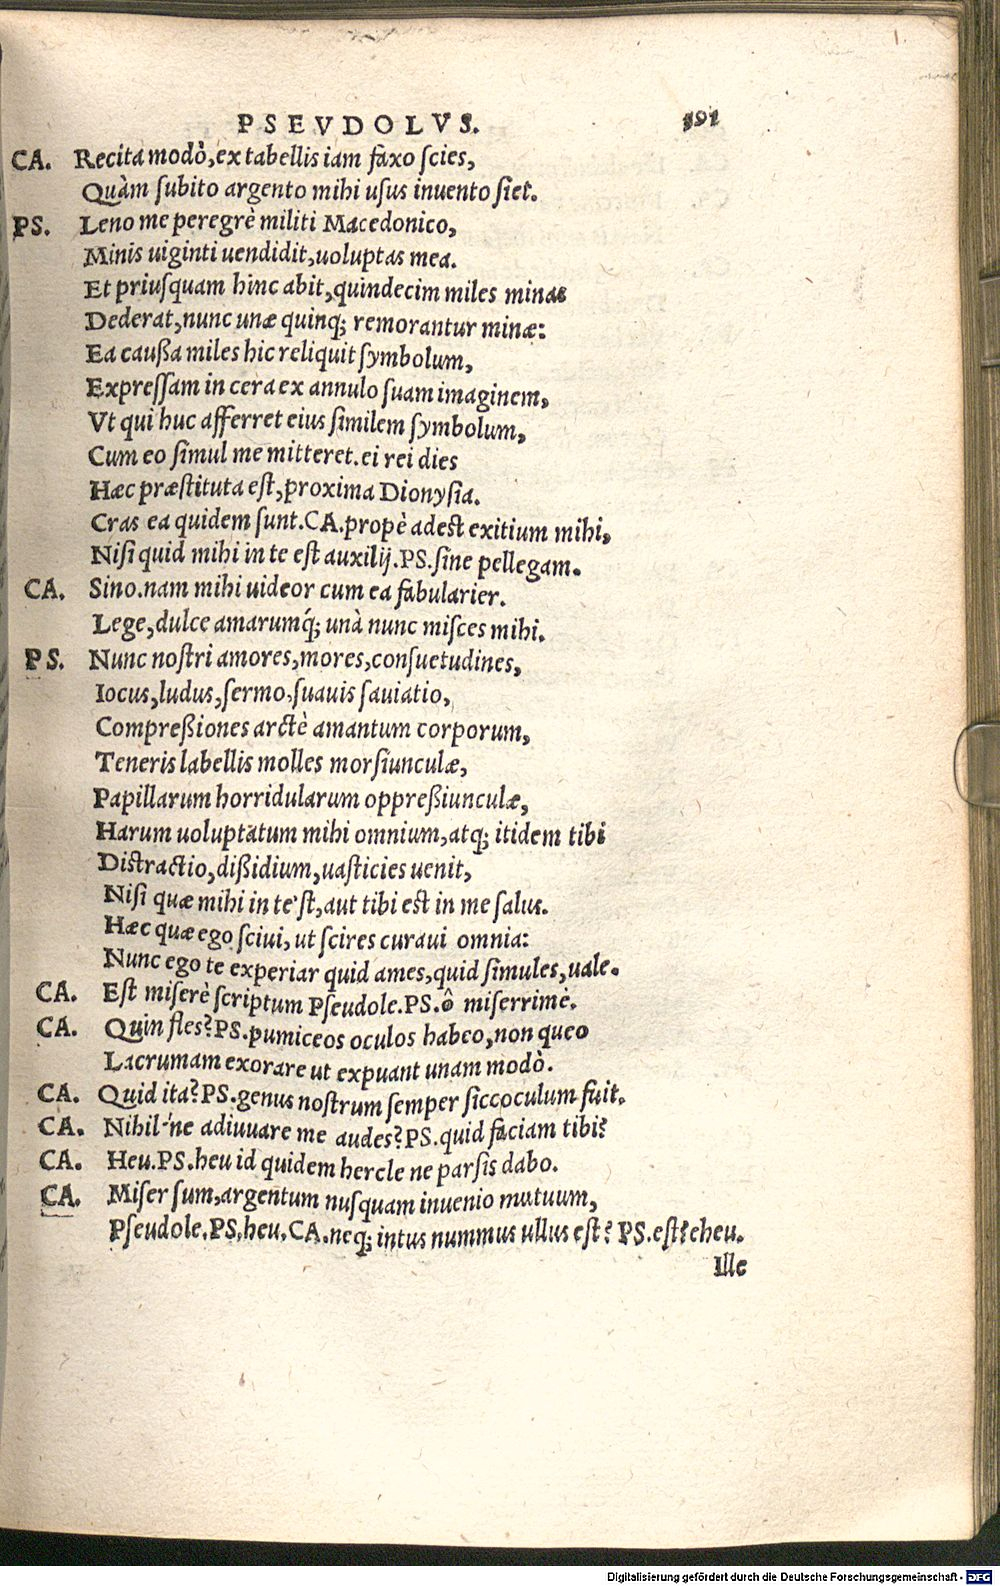 PSEVDOLVS. 591
CA. Recita modò, ex tabellis iam faxo scies,
Quàm subito argento mihi usus inuento siet.
PS. Leno me peregrè militi Macedonico,
Minis uiginti uendidit, uoluptas mea.
Et priusquam hinc abit, quindecim miles minas
Dederat, nunc unæ quinq; remorantur minæ:
Ea caußa miles hic reliquit symbolum,
Expressam in cera ex annulo suam imaginem,
Vt qui huc afferret eius similem symbolum,
Cum eo simul me mitteret. ei rei dies
Hæc præstituta est, proxima Dionysia.
Cras ea quidem sunt. CA. propè adest exitium mihi,
Nisi quid mihi in te est auxilij. PS. sine pellegam.
CA. Sino. nam mihi uideor cum ea fabularier.
Lege, dulce amarumq́; unà nunc misces mihi.
PS. Nunc nostri amores, mores, consuetudines,
Iocus, ludus, sermo, suauis sauiatio,
Compreßiones arctè amantum corporum,
Teneris labellis molles morsiunculæ,
Papillarum horridularum oppreßiunculæ,
Harum uoluptatum mihi omnium, atq; itidem tibi
Distractio, dißidium, uasticies uenit,
Nisi quæ mihi in te'st, aut tibi est in me salus.
Hæc quæ ego sciui, ut scires curaui omnia:
Nunc ego te experiar quid ames, quid simules, uale.
CA. Est miserè scriptum Pseudole. PS. ô miserrimè.
CA. Quin fles? PS. pumiceos oculos habeo, non queo
Lacrumam exorare ut expuant unam modò.
CA. Quid ita? PS. genus nostrum semper siccoculum fuit.
CA. Nihil-'ne adiuuare me audes? PS. quid faciam tibi?
CA. Heu. PS. heu id quidem hercle ne parsis dabo.
CA. Miser sum, argentum nusquam inuenio mutuum,
Pseudole. PS. heu. CA. neq; intus nummus ullus est? PS. est? eheu.
Ille
Digitalisierung gefördert durch die Deutsche Forschungsgemeinschaft - DFG